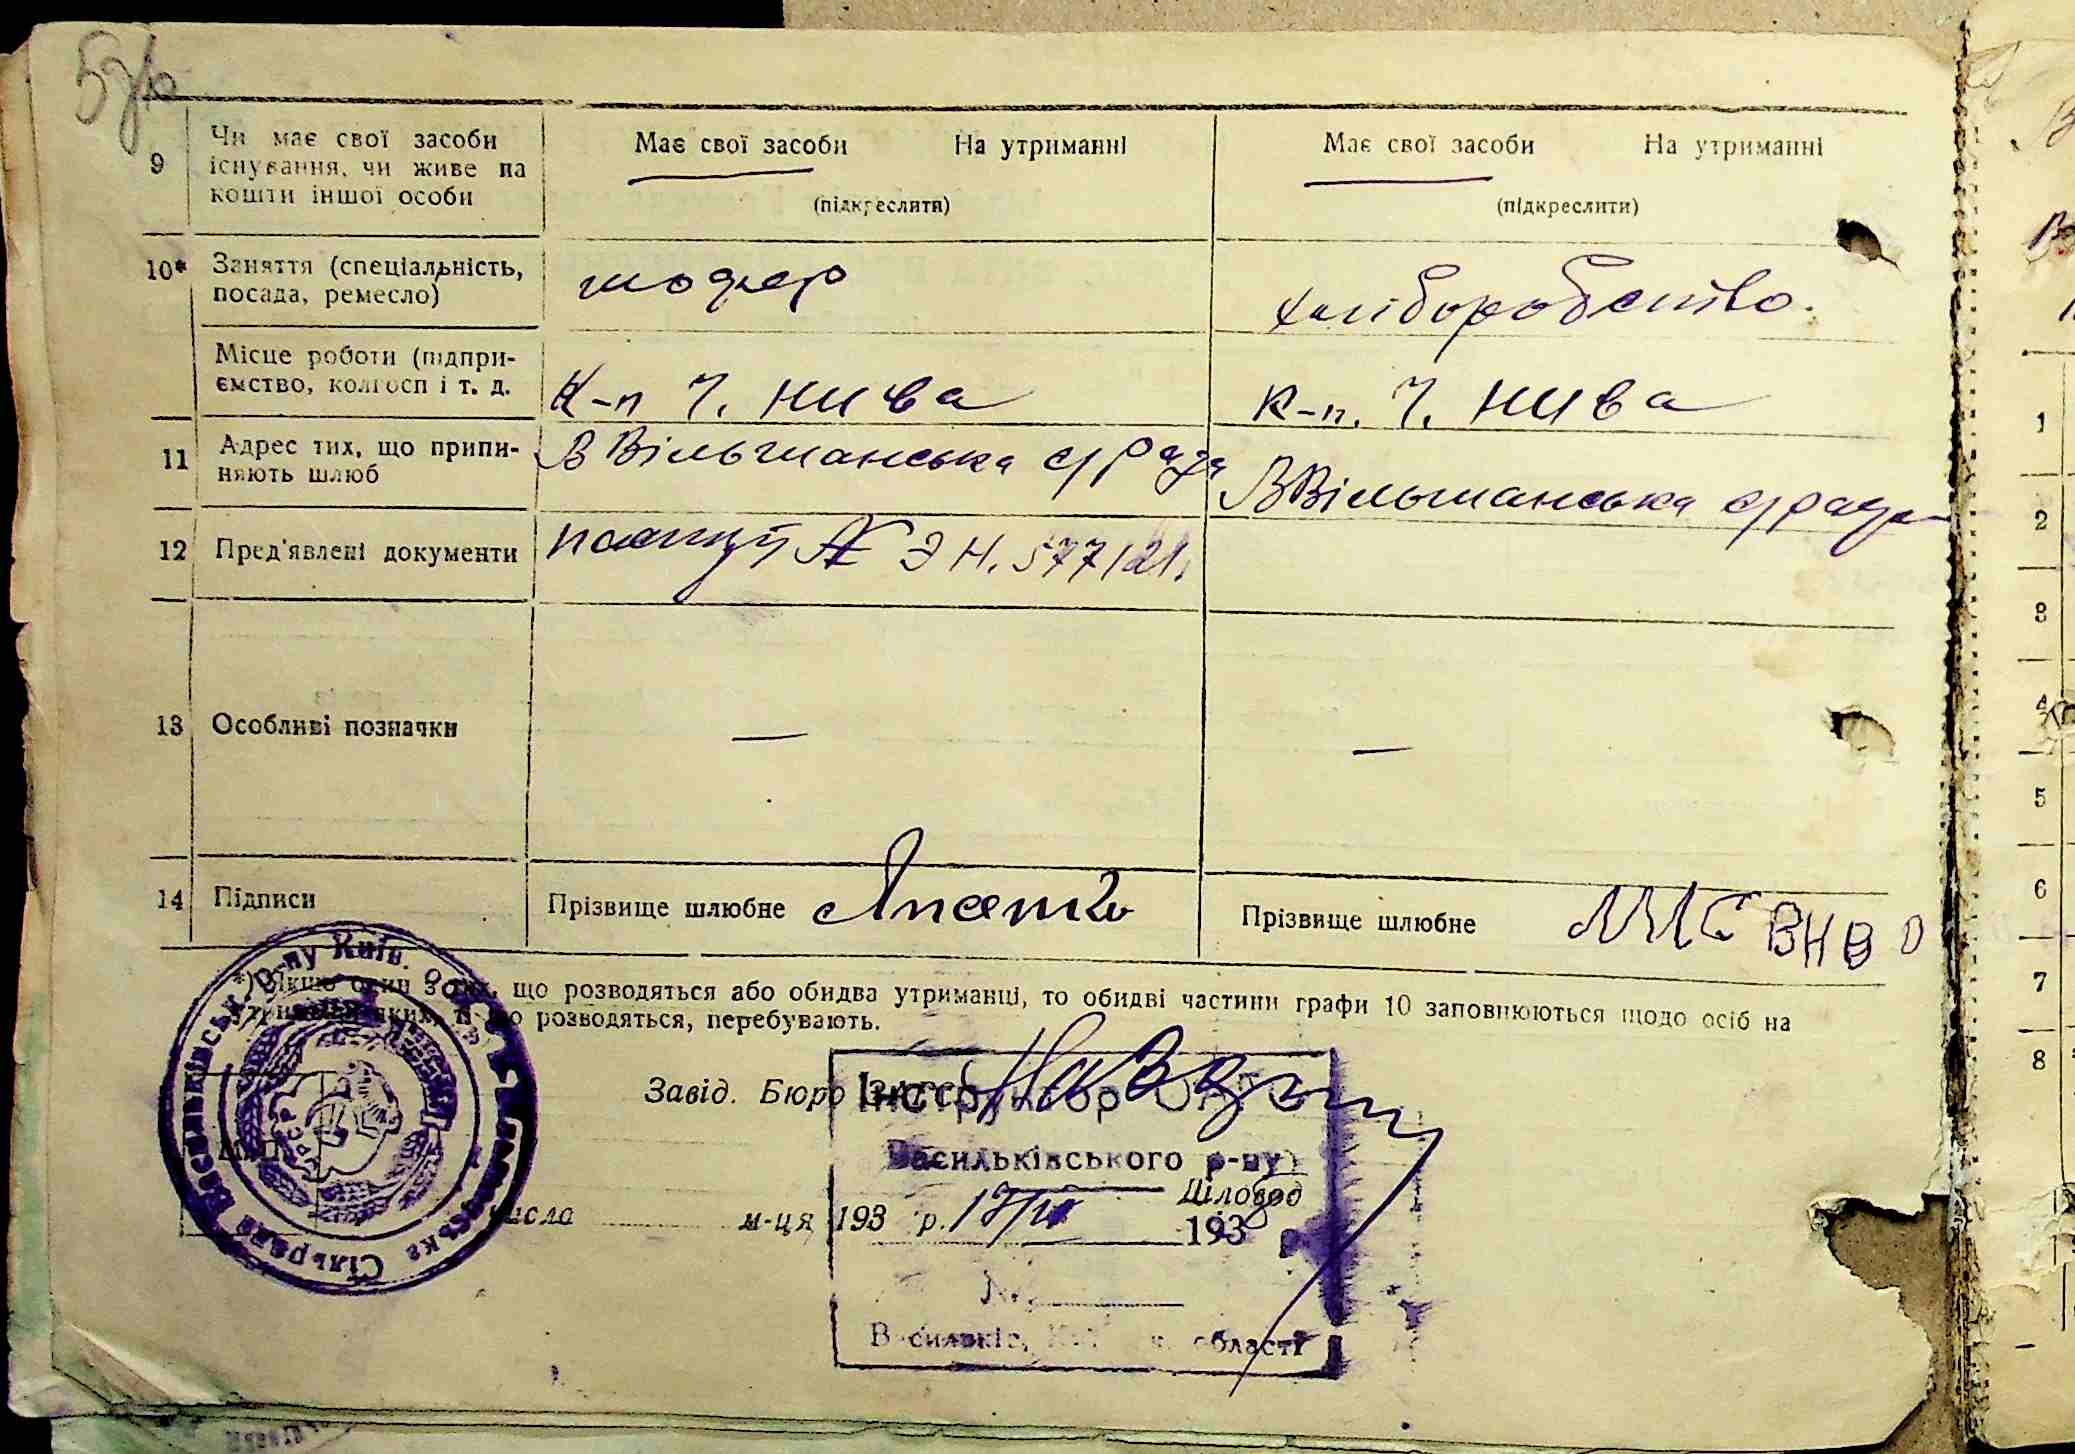 9 Чи має свої засоби існування, чи живе на кошти іншої особи
Має свої засоби На утриманні
(підкреслити)
Має свої засоби На утриманні
(підкреслити)
10* Заняття (спеціальність, посада, ремесло)
шофер
хліборобство.
Місце роботи (підпри-
ємство, колгосп і т. д.
К-п Ч. Нива
К-п. Ч. Нива
11 Адрес тих, що припи-
няють шлюб
В Вільшанська с/рада
В Вільшанська с/рада
12 Пред'явлені документи
паспорт № ЭН. 577121.
13 Особливі позначки
—
—
14 Підписи
Прізвище шлюбне
Прізвище шлюбне
*) Якщо один з тих, що розводяться або обидва утриманці, то обидві частини графи 10 заповнюються щодо осіб на
утриманні яких, ті що розводяться, перебувають.
Завід. Бюро ЗАГС
Інструктор
Васильківського р-ну
Діловод
числа м-ця 193 р.
193 р.
№
Васильків, Київськ. області
Васильківськ. р-ну Київ. обл.
Сільрада
М.П.
1
2
3
4
5
6
7
8